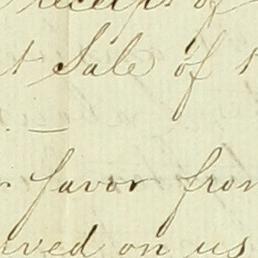 receipts of
t Sale of
r favor from
ved on us